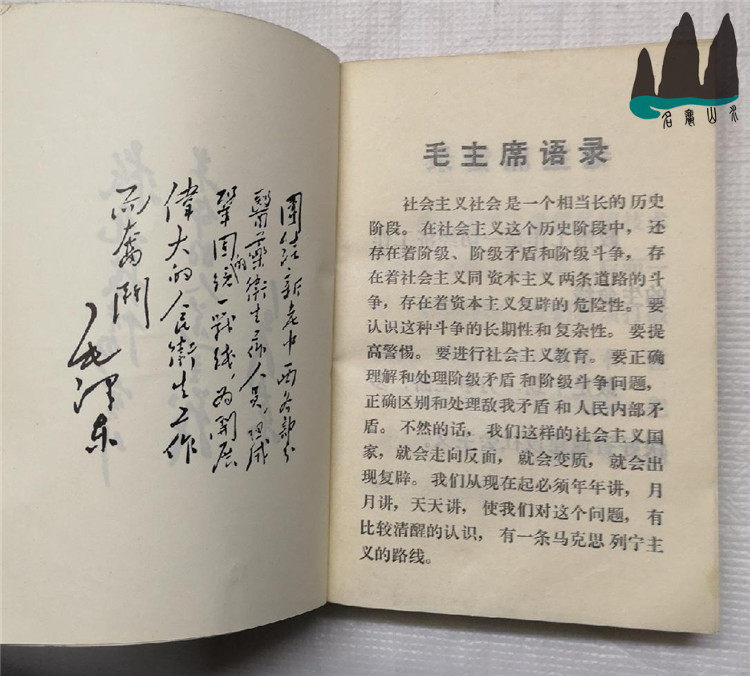 團结新老中西各部分
醫藥衛生工作人員，組成
鞏固的統一戰线，为開展
偉大的人民衛生工作
而奮鬥
毛泽东
毛主席语录
社会主义社会是一个相当长的历史
阶段。在社会主义这个历史阶段中，还
存在着阶级、阶级矛盾和阶级斗争，存
在着社会主义同资本主义两条道路的斗
争，存在着资本主义复辟的危险性。要
认识这种斗争的长期性和复杂性。要提
高警惕。要进行社会主义教育。要正确
理解和处理阶级矛盾和阶级斗争问题，
正确区别和处理敌我矛盾和人民内部矛
盾。不然的话，我们这样的社会主义国
家，就会走向反面，就会变质，就会出
现复辟。我们从现在起必须年年讲，月
月讲，天天讲，使我们对这个问题，有
比较清醒的认识，有一条马克思列宁主
义的路线。